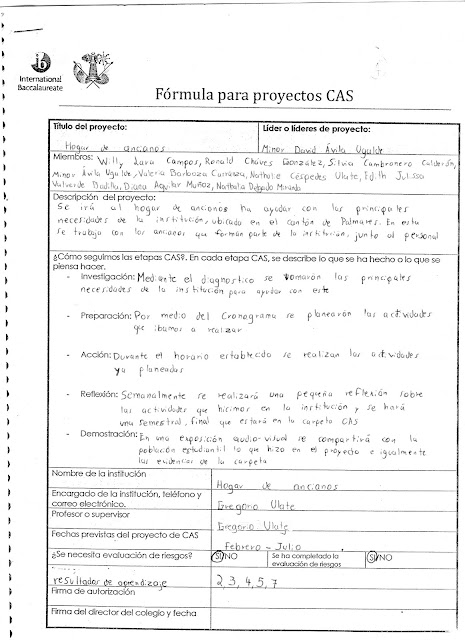 International
Baccalaureate
Fórmula para proyectos CAS
Título del proyecto:
Hogar de ancianos
Líder o líderes de proyecto:
Minor David Ávila Ugalde
Miembros: Willy Lara Campos, Ronald Chaves González, Silvia Cambronero Calderón,
Minor Ávila Ugalde, Valeria Barboza Carranza, Nathalie Céspedes Ulate, Edith Julissa
Valverde Badilla, Diana Aguilar Muñoz, Nathalia Delgado Miranda
Descripción del proyecto:
Se irá al hogar de ancianos ha ayudar con las principales
necesidades de la institución, ubicada en el cantón de Palmares. En esta
se trabaja con los ancianos que forman parte de la institución, junto al personal
¿Cómo seguimos las etapas CAS?. En cada etapa CAS, se describe lo que se ha hecho o lo que se
piensa hacer.
- Investigación: Mediante el diagnostico se tomarón las principales
necesidades de la institución para ayudar con este
- Preparación: Por medio del Cronograma se planearón las actividades
que ibamos a realizar
- Acción: Durante el horario establecido se realizan las actividades
ya planeadas
- Reflexión: Semanalmente se realizará una pequeña reflexión sobre
las actividades que hicimos en la institución y se hará
una semestral, final que estará en la carpeta CAS
- Demostración: En una exposición audio-visual se compartirá con la
población estudiantil lo que hizo en el proyecto e igualmente
las evidencias de la carpeta
Nombre de la institución
Hogar de ancianos
Encargado de la institución, teléfono y
correo electrónico.
Gregorio Ulate
Profesor o supervisor
Gregorio Ulate
Fechas previstas del proyecto de CAS
Febrero - Julio
¿Se necesita evaluación de riesgos?
SI/NO
Se ha completado la
evaluación de riesgos
SI/NO
resultados de aprendizaje
2, 3, 4, 5, 7
Firma de autorización
Firma del director del colegio y fecha